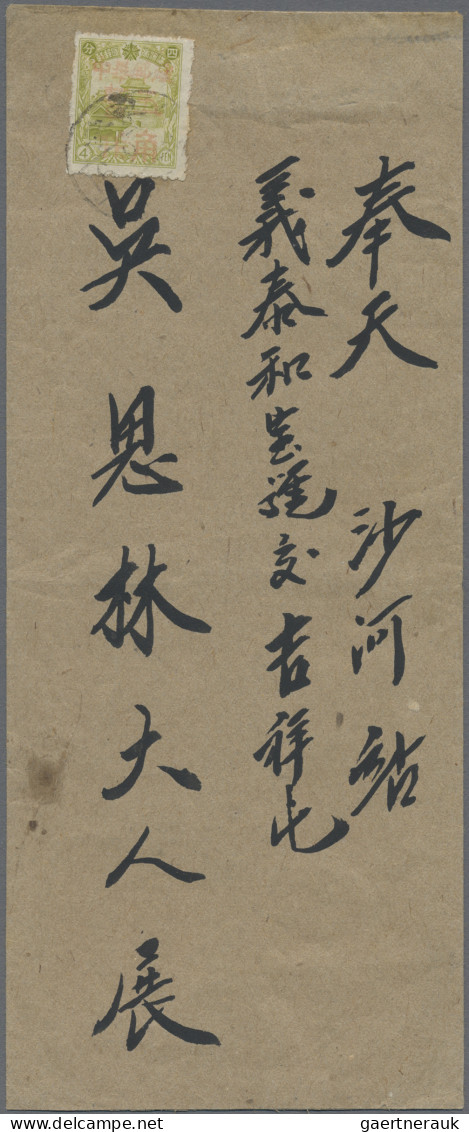 奉天 沙河站
義泰和宝號交吉祥屯
吳恩林大人展
分
四
4
delcampe.net
gaertnerauk